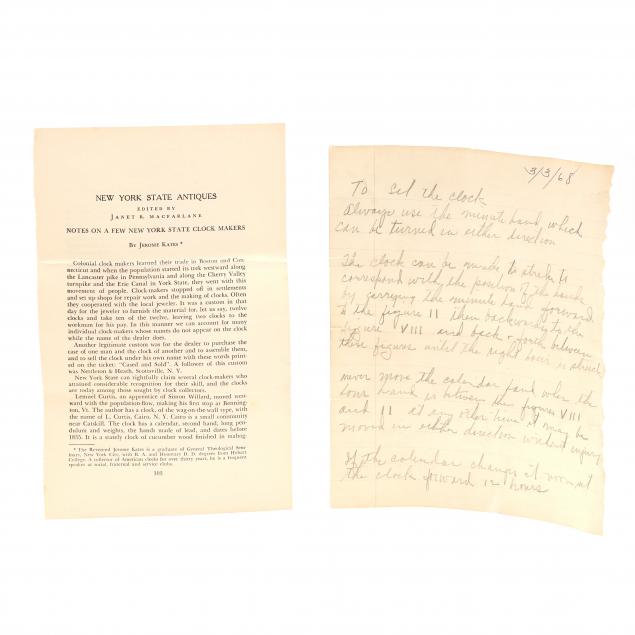 NEW YORK STATE ANTIQUES
EDITED BY
JANET R. MACFARLANE
NOTES ON A FEW NEW YORK STATE CLOCK MAKERS
BY JEROME KATES *
Colonial clock makers learned their trade in Boston and Con-
necticut and when the population started its trek westward along
the Lancaster pike in Pennsylvania and along the Cherry Valley
turnpike and the Erie Canal in York State, they went with this
movement of people. Clock-makers stopped off at settlements
and set up shops for repair work and the making of clocks. Often
they cooperated with the local jeweler. It was a custom in that
day for the jeweler to furnish the material for, let us say, twelve
clocks and take ten of the twelve, leaving two clocks to the
workman for his pay. In this manner we can account for many
individual clock-makers whose names do not appear on the clock
while the name of the dealer does.
Another legitimate custom was for the dealer to purchase the
case of one man and the clock of another and to assemble them,
and to sell the clock under his own name with these words print-
ed on the ticket: "Cased and Sold". A follower of this custom
was Nettleton & Heath, Scottsville, N. Y.
New York State can rightfully claim several clock-makers who
attained considerable recognition for their skill, and the clocks
are today among those sought by clock collectors.
Lemuel Curtis, an apprentice of Simon Willard, moved west-
ward with the population-flow, making his first stop at Benning-
ton, Vt. The author has a clock, of the wag-on-the-wall type, with
the name of L. Curtis, Cairo, N. Y. Cairo is a small community
near Catskill. The clock has a calendar, second hand, long pen-
dulum and weights, the hands made of lead, and dates before
1835. It is a stately clock of cucumber wood finished in mahog-
* The Reverend Jerome Kates is a graduate of General Theological Semi-
nary, New York City, with B. A. and Honorary D. D. degrees from Hobart
College. A collector of American clocks for over thirty years, he is a frequent
speaker at social, fraternal and service clubs.
3/3/68
To set the clock
Always use the minute hand which
can be turned in either direction
The clock can be made to strike to
correspond with the position of the hands
by carrying the minute hand forward
to the figure II then backward to the
figure VIII and back & forth between
those figures until the right hour is struck
never move the calendar hand when the
hour hand is between the figures VIII
and II at any other time it may be
moved in either direction without injury
If the calendar changes at noon set
the clock forward 12 hours